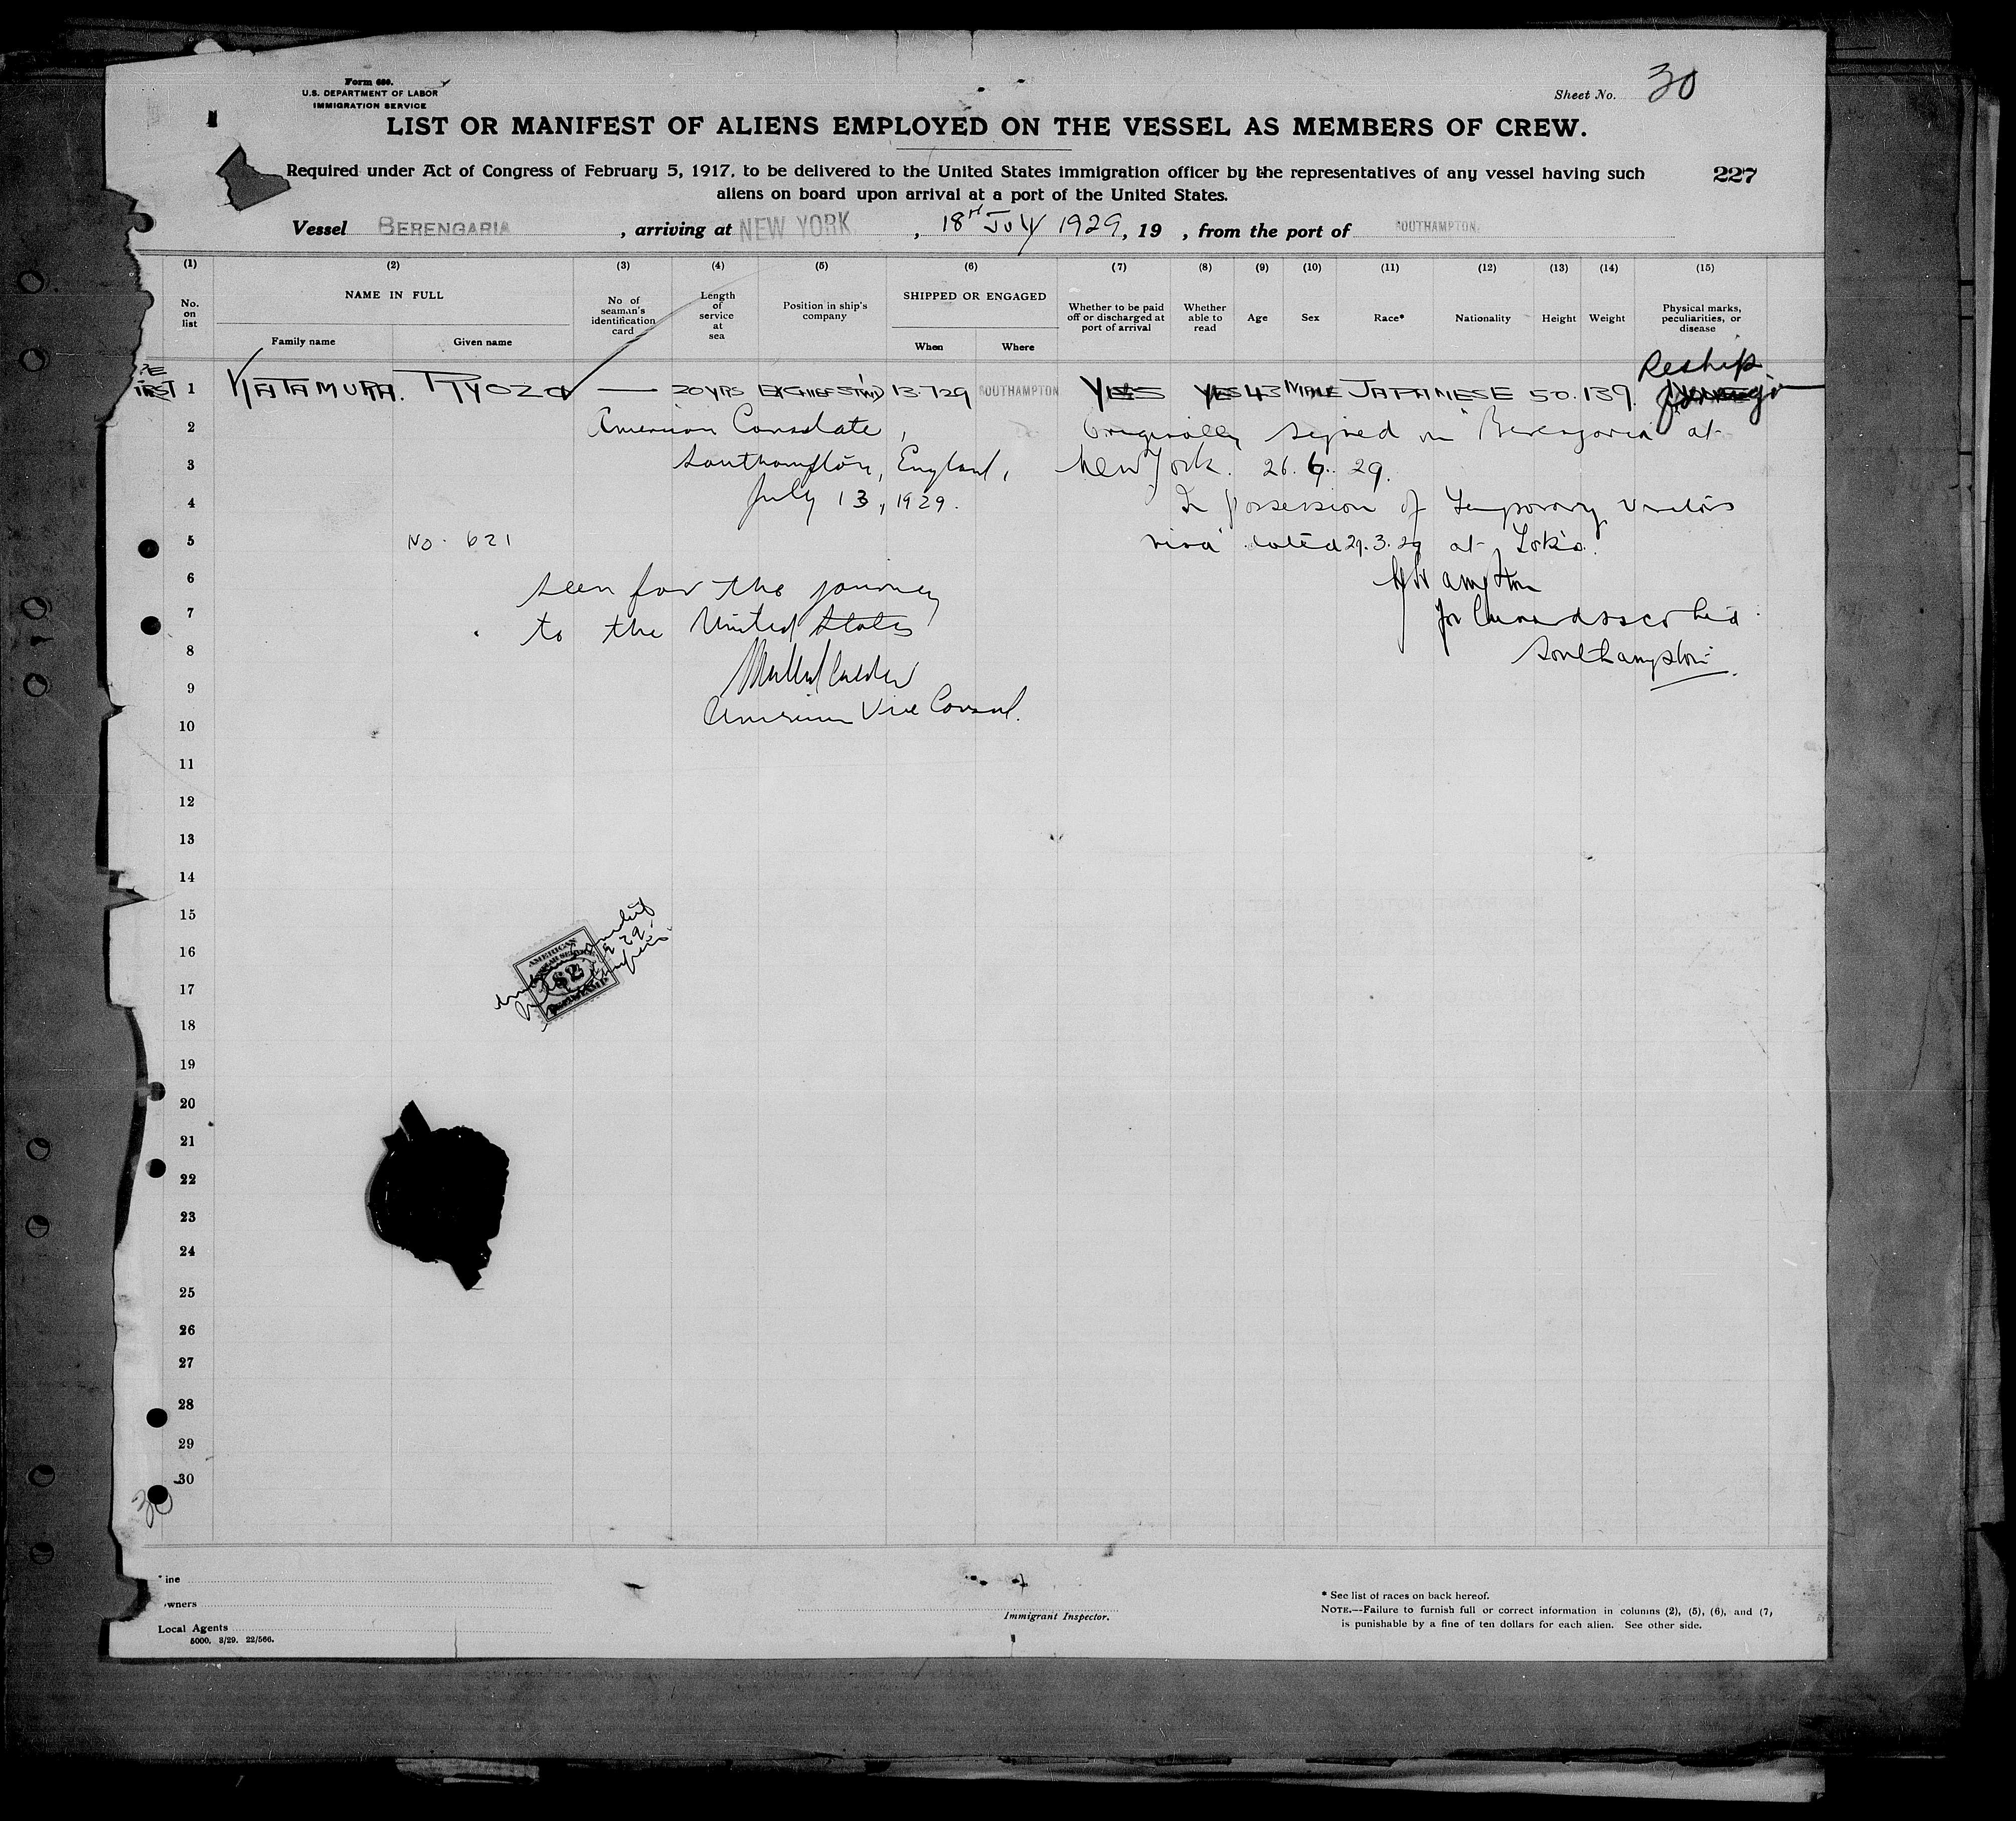 Form 680.
U.S. DEPARTMENT OF LABOR
IMMIGRATION SERVICE
Sheet No. 30
LIST OR MANIFEST OF ALIENS EMPLOYED ON THE VESSEL AS MEMBERS OF CREW.
Required under Act of Congress of February 5, 1917, to be delivered to the United States immigration officer by the representatives of any vessel having such
aliens on board upon arrival at a port of the United States.
227
Vessel BERENGARIA, arriving at NEW YORK, 18th July 1929, 19 , from the port of SOUTHAMPTON.
(1) (2) (3) (4) (5) (6) (7) (8) (9) (10) (11) (12) (13) (14) (15)
No. on list
NAME IN FULL
Family name
Given name
No of seaman's identification card
Length of service at sea
Position in ship's company
SHIPPED OR ENGAGED
When
Where
Whether to be paid off or discharged at port of arrival
Whether able to read
Age
Sex
Race*
Nationality
Height
Weight
Physical marks, peculiarities, or disease
Reship
1 KATAMURA. RYOZO — 20 YRS EX CHIEF STWD 13.7.29 SOUTHAMPTON YES YES 43 MALE JAPANESE 5 0. 139.
2 American Consulate, Originally signed on "Berengaria" at
3 Southampton, England, New York. 26. 6. 29.
4 July 13, 1929. In possession of Temporary Visitors
5 No. 621 visa dated 29. 3. 29 at Tokio.
6 Seen for the journey
7 to the United States
8 Southampton.
9
10 American Vice Consul.
11
12
13
14
15
16
17
18
19
20
21
22
23
24
25
26
27
28
29
30
AMERICAN
$2
30
ine
wners
Local Agents
5000. 3/29. 22/566.
Immigrant Inspector.
* See list of races on back hereof.
NOTE.—Failure to furnish full or correct information in columns (2), (5), (6), and (7,
is punishable by a fine of ten dollars for each alien. See other side.